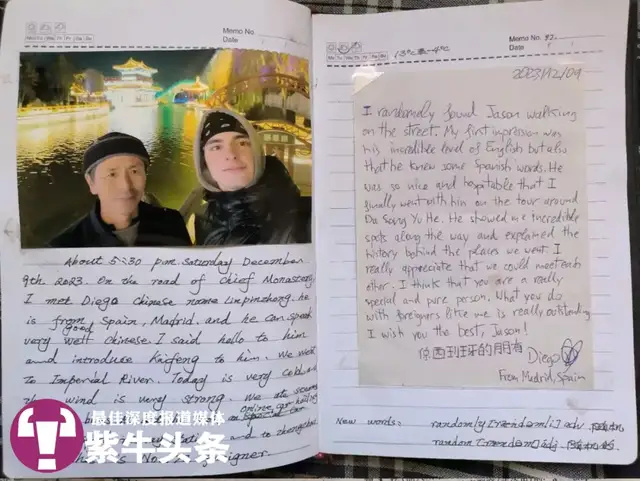 Memo No.
Date
About 5:30 p.m. Saturday December
9th 2023. On the road of chief Monastery
I met Diego chinese name Linpinzhong. he
is from Spain, Madrid. and he can speak
very good well chinese. I said hello to him
and introduce Kaifeng to him. We went
to Imperial River. Today is very cold and
The wind is very strong. We ate
online car hailing
special car
and to zhengzhou
is No.
Memo No.
Date
13℃ -4℃
2023/12/09
I randomely found Jason walking
on the street. My first impression was
his incredible level of English but also
that he knew some Spanish words. He
was so nice and hospitable that I
finally went with him on the tour around
Da Song Yu He. He showed me incredible
spots along the way and explained the
history behind the places we went. I
really appreciate that we could meet each
other. I think that you are a really
special and pure person. What you do
with foreigners like me is really outstanding
I wish you the best, Jason!
你西班牙的朋有
Diego
From Madrid, Spain
New words: randomly [rændəmli] adv. 随机
random [rændəm] adj. 随机的
最佳深度报道媒体
紫牛头条